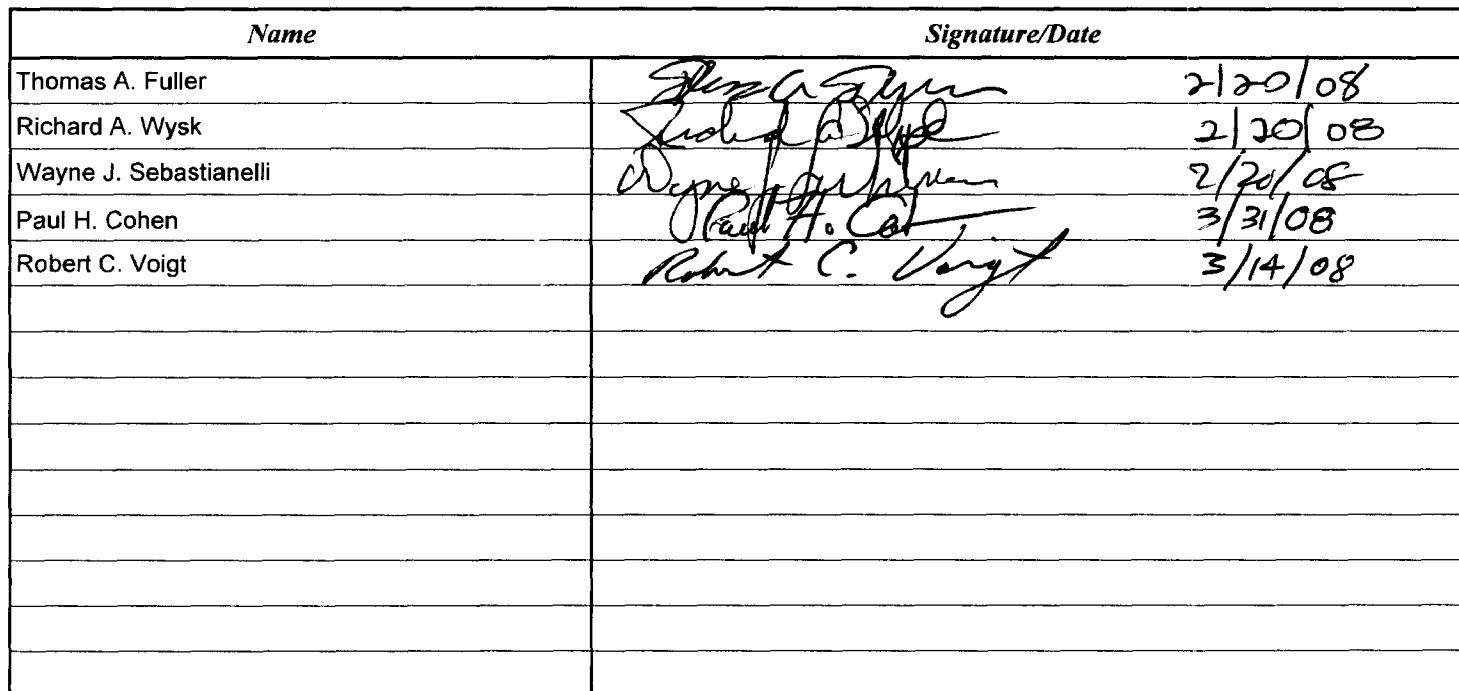 Name Signature/Date
Thomas A. Fuller 2/20/08
Richard A. Wysk 2/20/08
Wayne J. Sebastianelli Wayne J. 2/20/08
Paul H. Cohen Paul H. 3/31/08
Robert C. Voigt Robert C. Voigt 3/14/08